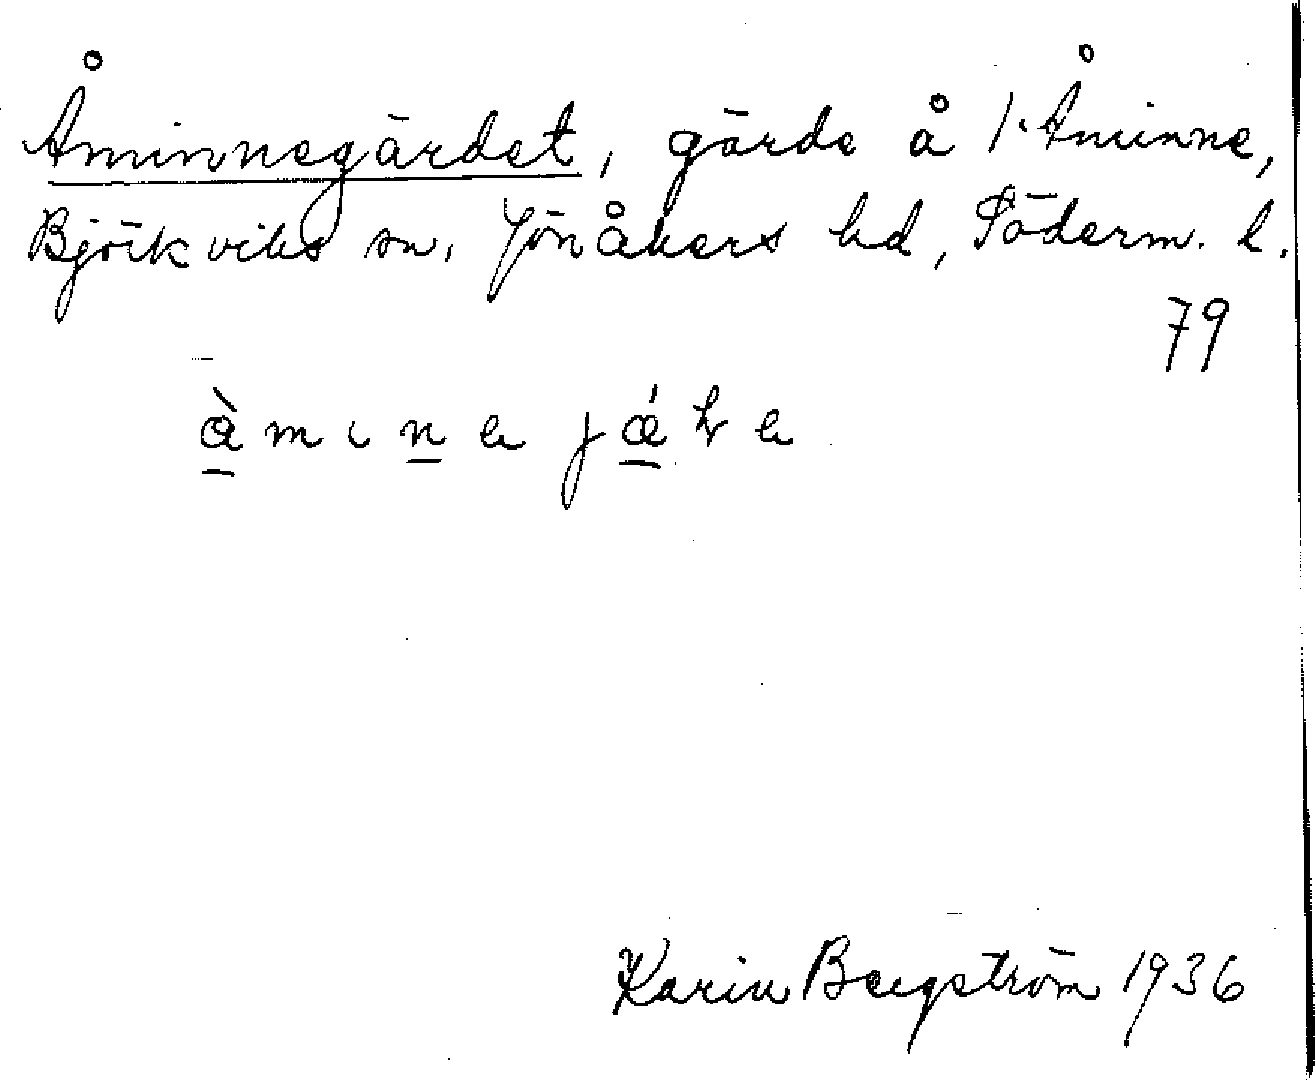 Åminnegärdet, gärde å 1. Åminne,
Björkviks sn, Jönåkers hd, Söderm. l.
79
Karin Bergström 1936